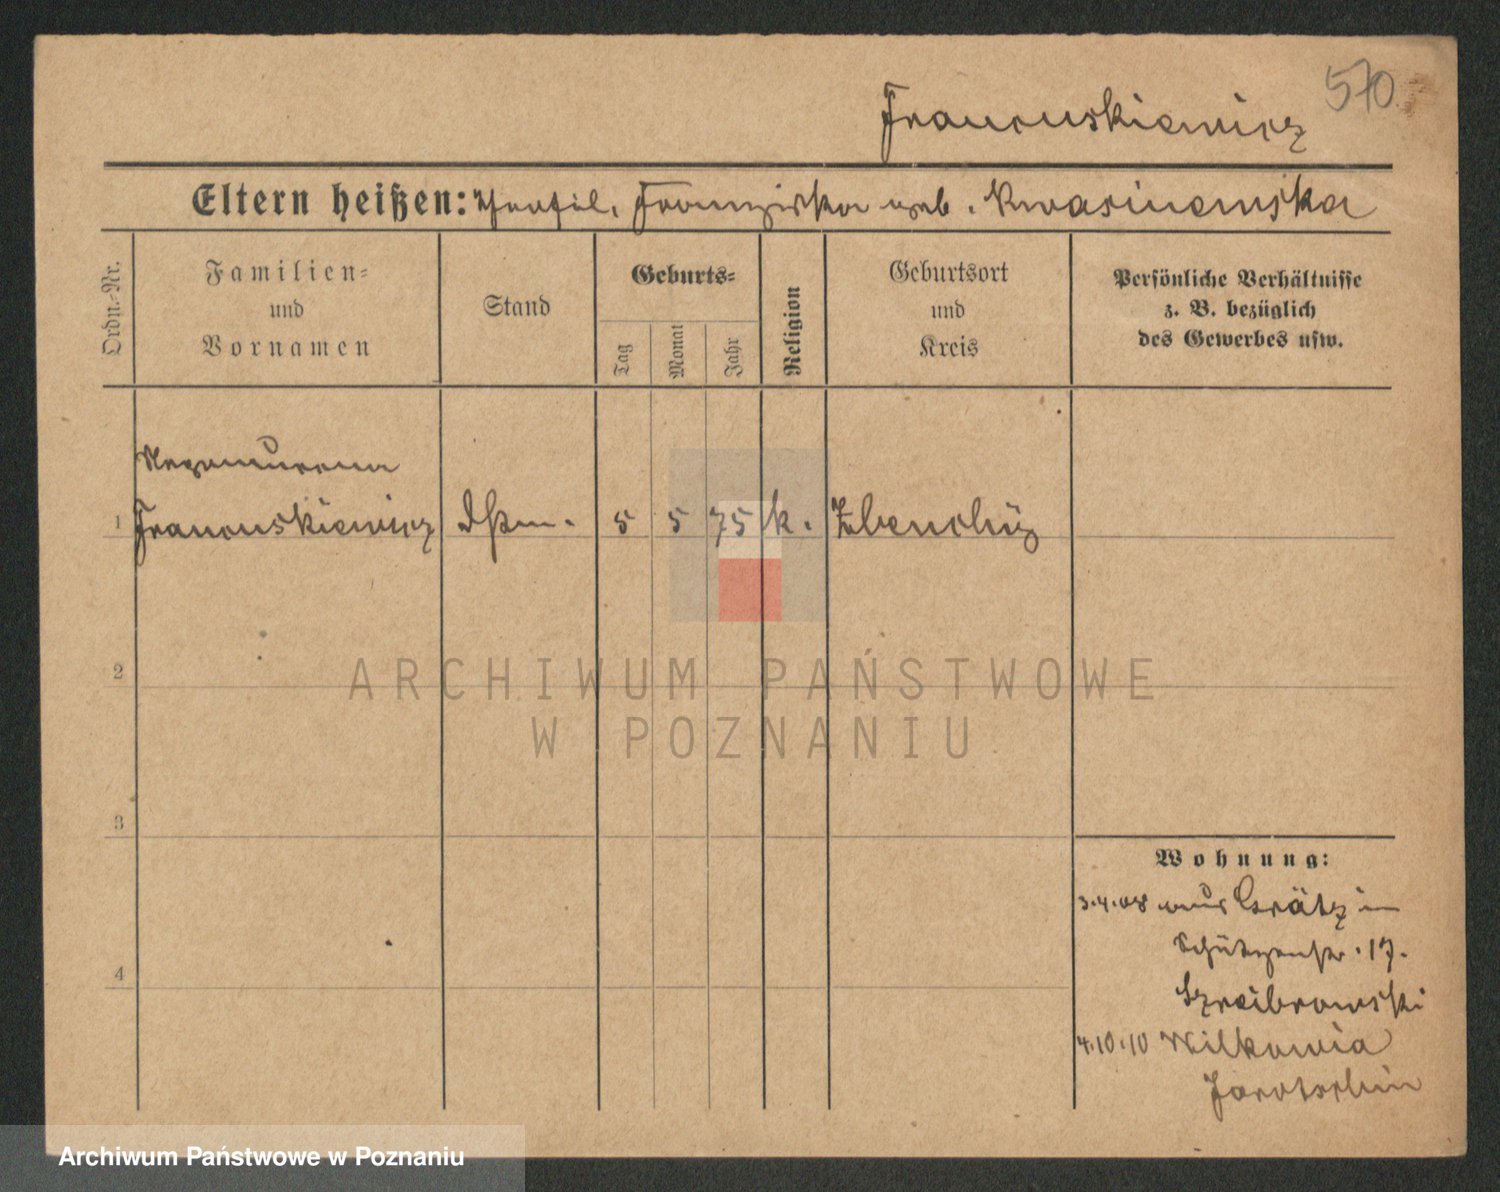 570.
Francuskiewicz
Eltern heißen: Theofil, Franziska geb. Kwasniewska
Ordn.-Nr.
Familien-
und
Vornamen
Stand
Geburts-
Tag
Monat
Jahr
Religion
Geburtsort
und
Kreis
Persönliche Verhältnisse
z. B. bezüglich
des Gewerbes usw.
1 Francuskiewicz 5 5 75 k.
2
3
4
Wohnung:
3.4.08 aus Grätz in
Schützenstr. 17.
4.10.10 Wilkowia
Jarotschin
ARCHIWUM PAŃSTWOWE
W POZNANIU
Archiwum Państwowe w Poznaniu